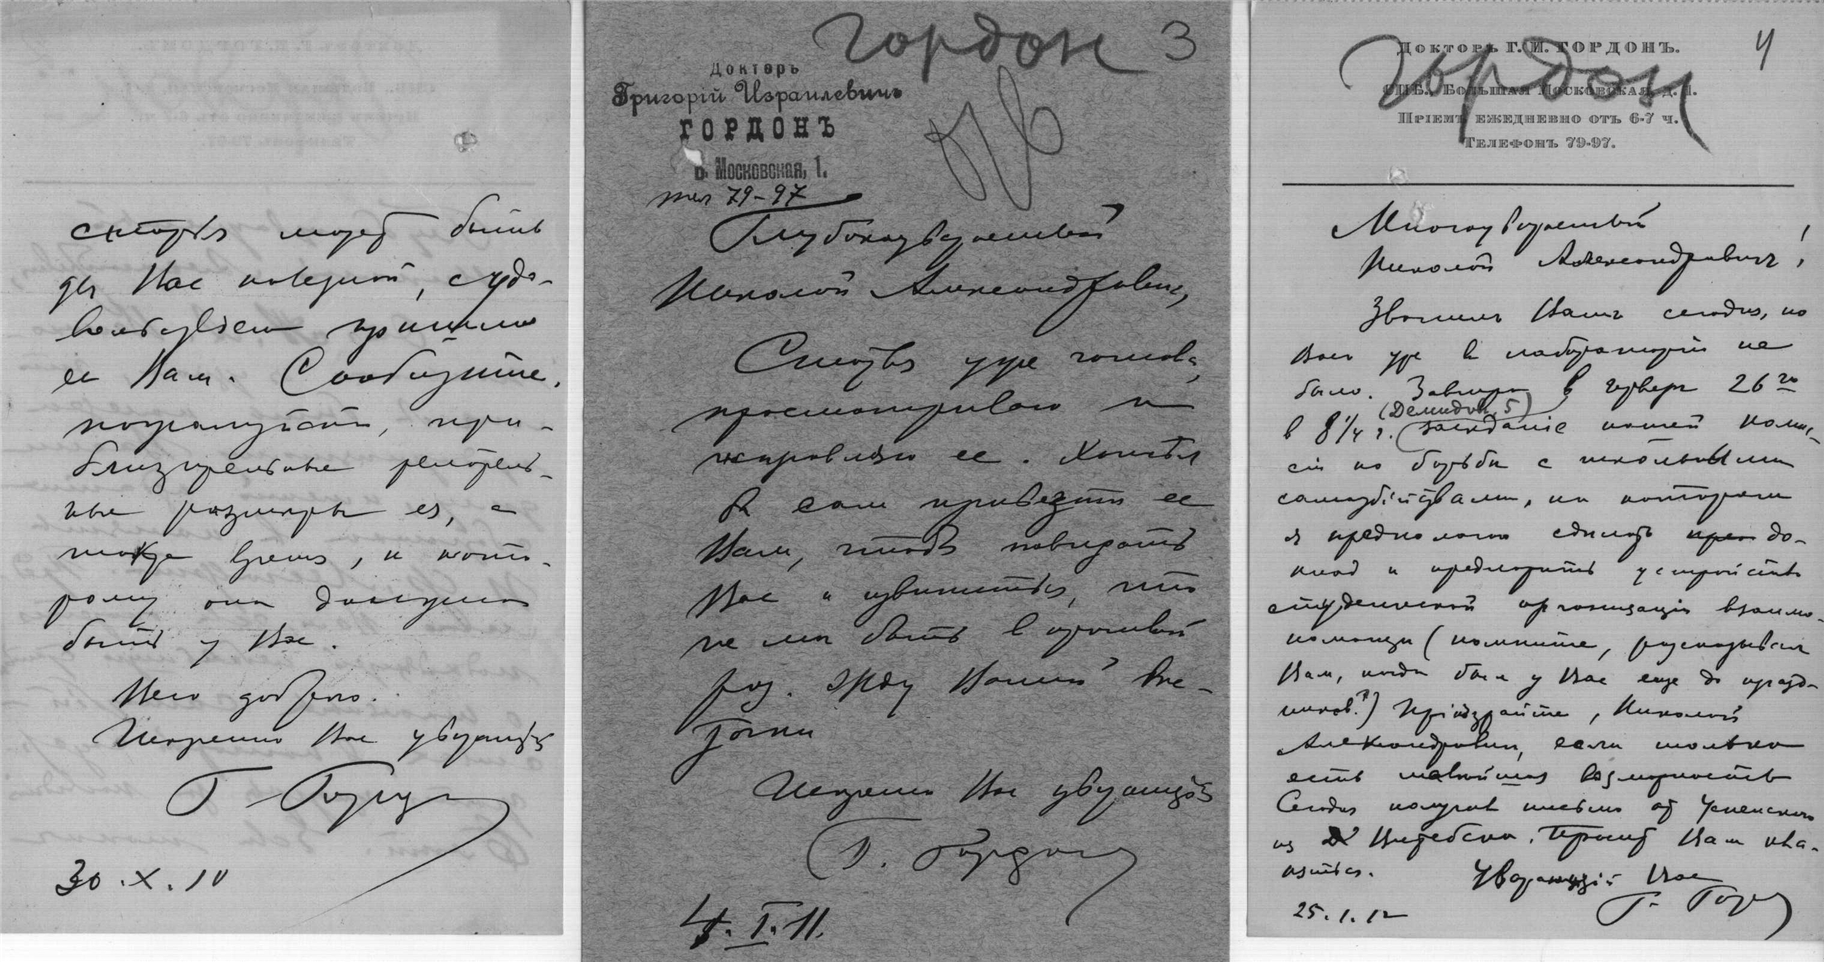 статья может быть
для Вас полезной, с удо-
вольствием пришлю
ее Вам. Сообщите,
пожалуйста, при-
близительные
размеры ея, а
также время, к кото-
рому она должна
быть у Вас.
Всего доброго.
Искренно Вас уважающій
Г. Гордон
30.X.10
Гордон 3
Докторъ
Григорій Израилевичъ
ГОРДОНЪ
Б. Московская, 1.
тел 79-97
Глубокоуважаемый
Николай Александрович,
Статья уже готова,
просматриваю и
исправляю ее. Хотѣл
бы сам привезти ее
Вам, чтобы повидать
Вас и извиниться, что
не мог быть в прошлый
раз. Жду Вашей
Искренно Вас уважающій
Г. Гордон
4.I.11.
Гордон 4
Докторъ Г. И. ГОРДОНЪ.
СПБ., Большая Московская, д. 1.
Пріемъ ежедневно отъ 6-7 ч.
Телефонъ 79-97.
Многоуважаемый
Николай Александрович!
Звонил Вам сегодня, но
Вас уже в лабораторіи не
было. Завтра в четверг 26го
в 8 1/4 ч. (Демидов. 5) засѣданіе нашей комис-
сіи по борьбѣ с школьными
самоубійствами, на котором
я предполагаю сдѣлать до-
клад и предложить устройство
студенческой организаціи взаимо-
помощи (помните, рассказывал
Вам, когда был у Вас еще до празд-
ников?) Пріѣзжайте, Николай
Александрович, если только
есть малѣйшая возможность
Сегодня получил письмо от Успенского
из Витебска. Просит Вам кла-
няться.
Уважающій Вас
Г. Гордон
25.1.12